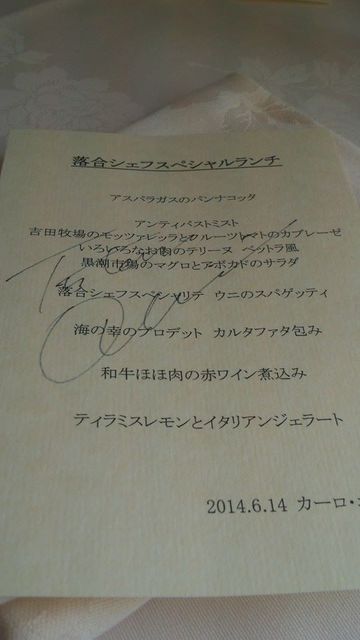 落合シェフスペシャルランチ
アスパラガスのパンナコッタ
アンティパストミスト
吉田牧場のモッツァレッラとフルーツトマトのカプレーゼ
いろいろなお肉のテリーヌ ペットラ風
黒潮市場のマグロとアボカドのサラダ
落合シェフスペシャリテ ウニのスパゲッティ
海の幸のブロデット カルタファタ包み
和牛ほほ肉の赤ワイン煮込み
ティラミスレモンとイタリアンジェラート
2014.6.14 カーロ・